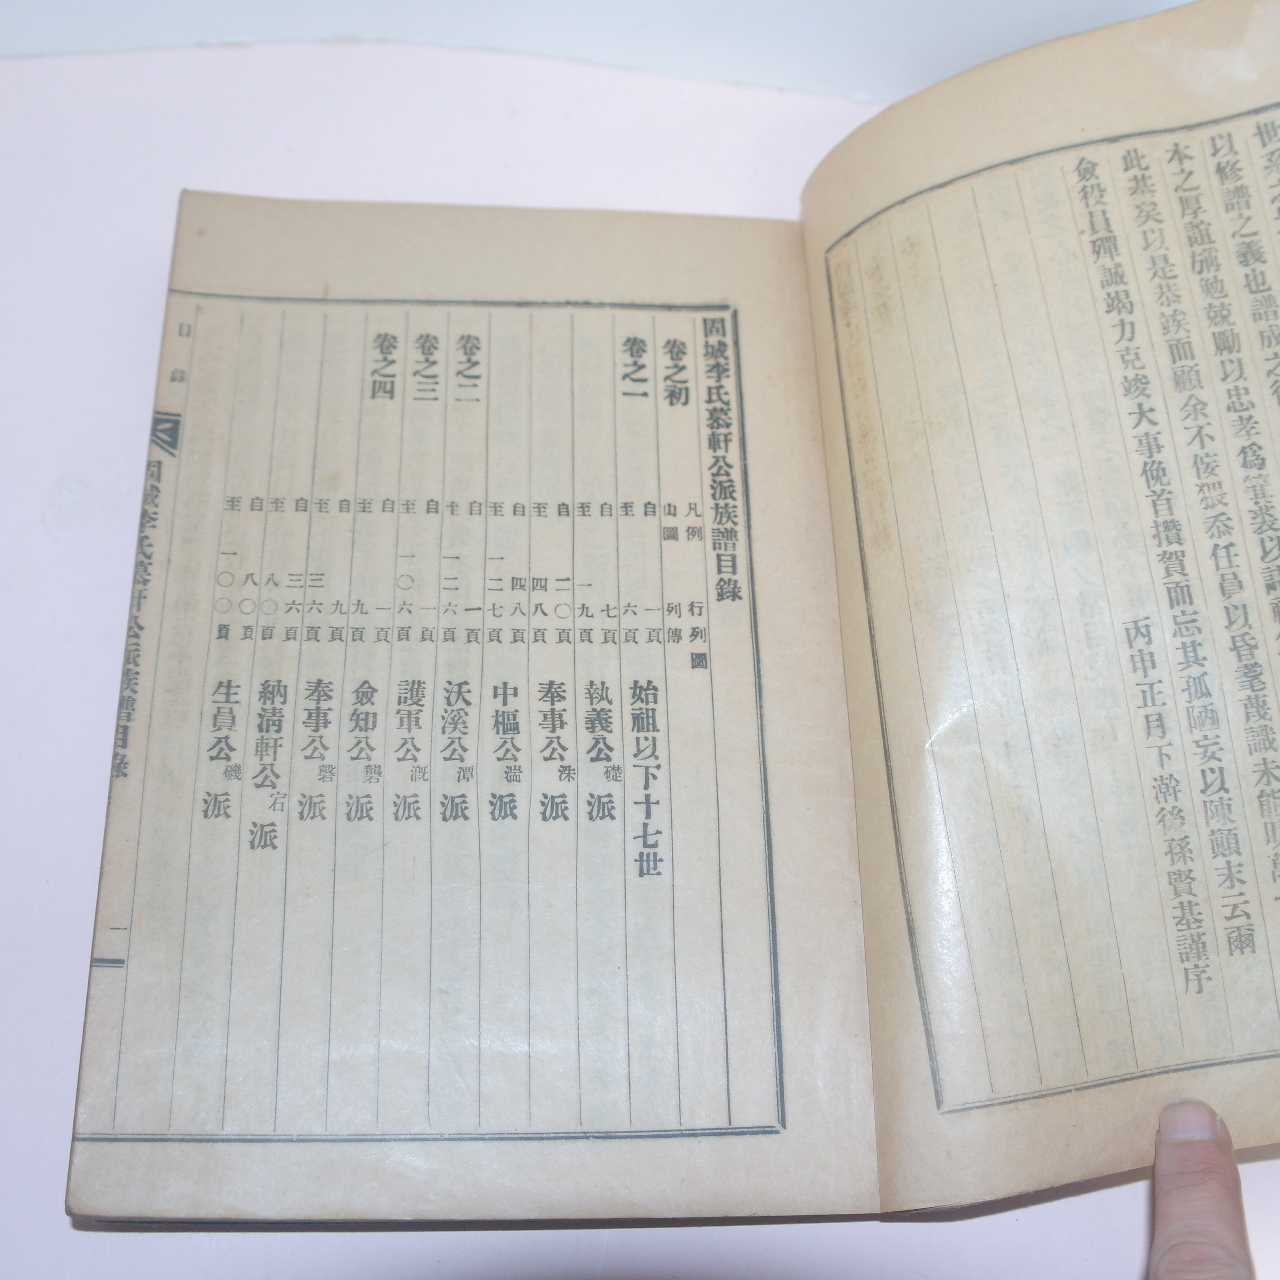 以修譜之義也譜成之後
本之厚誼勉兢勵以忠孝爲箕裘以
此基矣以是恭竢而顧余不佞猥忝任員以昏耄蔑識未能
僉役員殫誠竭力克竣大事俛首攢賀而忘其孤陋妄以陳顚末云爾
丙申正月下澣後孫賢基謹序
固城李氏慕軒公派族譜目錄
卷之初 凡例 行列圖
山圖 列傳
卷之一 自一頁 至六頁 始祖以下十七世
自七頁 至一九頁 執義公礎派
自二〇頁 至四八頁 奉事公洙派
自四八頁 至一二七頁 中樞公湍派
卷之二 自一頁 至一二六頁 沃溪公潭派
卷之三 自一頁 至一〇六頁 護軍公漑派
卷之四 自一頁 至九頁 僉知公磐派
自九頁 至三六頁 奉事公磬派
自三六頁 至八〇頁 納淸軒公宕派
自八〇頁 至一〇〇頁 生員公磯派
目錄
固城李氏慕軒公派族譜目錄
一